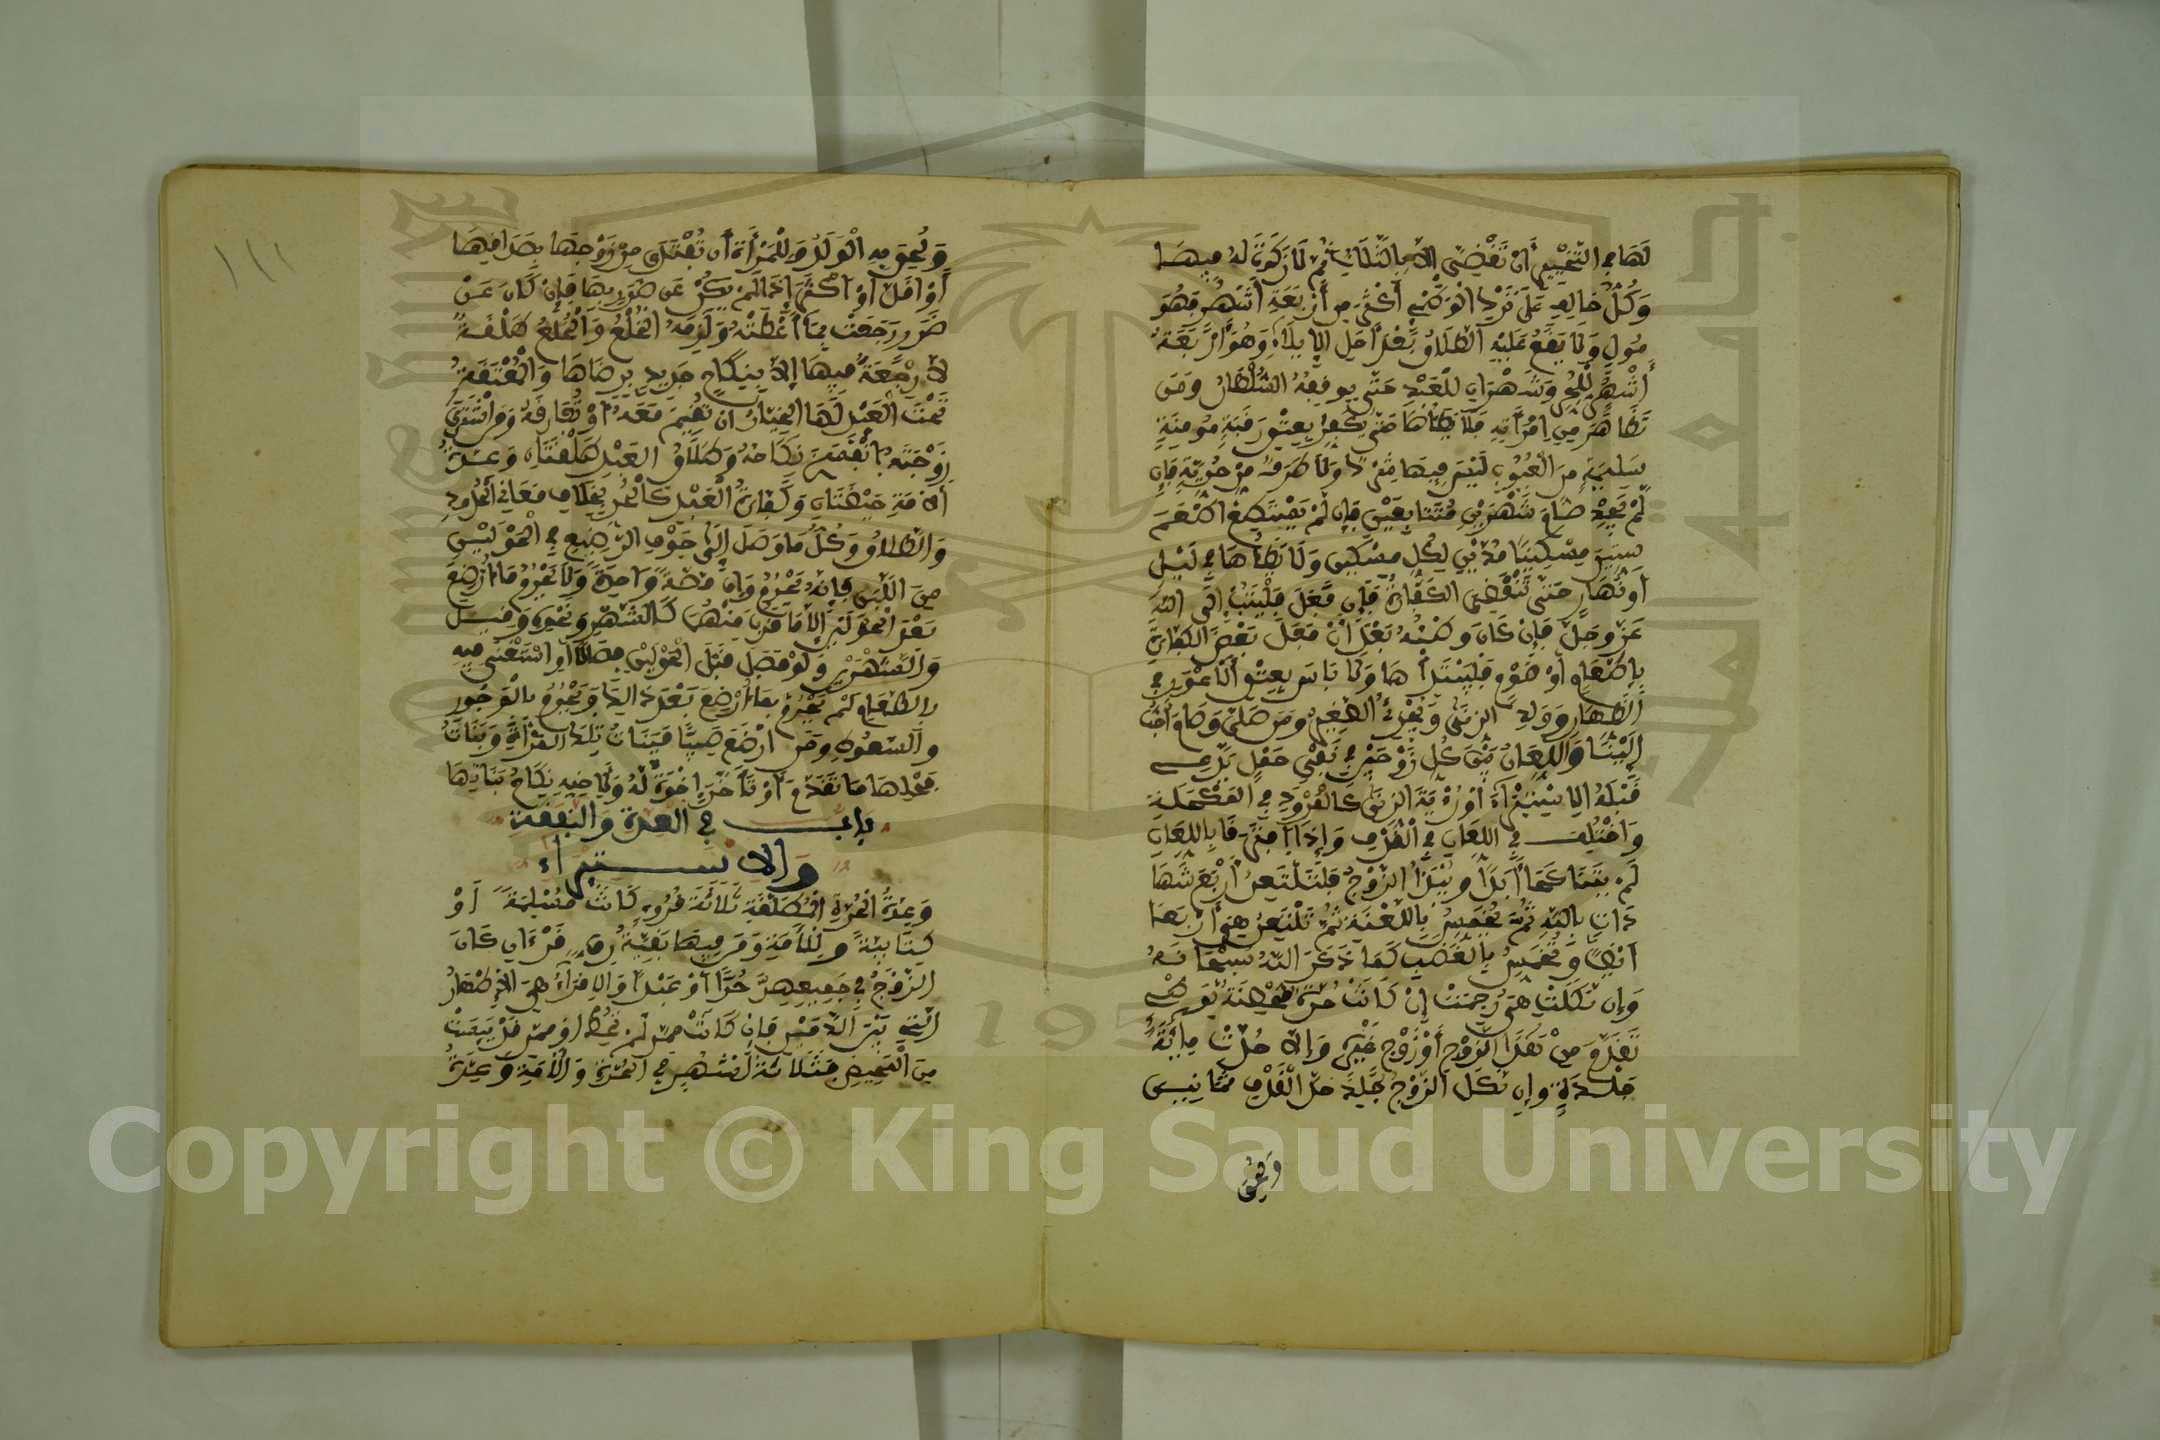 لَهَا فِي التَّخْيِيرِ أَنْ تَقْضِيَ إِلَّا بِالثَّلَاثِ ثُمَّ لَا نَكَرَةَ لَهُ فِيهَا
وَكُلُّ حَالِفٍ عَلَى تَرْكِ الْوَطْءِ أَكْثَرَ مِنْ أَرْبَعَةِ أَشْهُرٍ فَهُوَ
مُولٍ وَلَا يَقَعُ عَلَيْهِ الطَّلَاقُ بَعْدَ أَجَلِ الْإِيلَاءِ وَهُوَ أَرْبَعَةُ
أَشْهُرٍ لِلْحُرِّ وَشَهْرَانِ لِلْعَبْدِ حَتَّى يُوقِفَهُ السُّلْطَانُ وَمَنْ
تَظَاهَرَ مِنِ امْرَأَتِهِ فَلَا يَطَأْهَا حَتَّى يُكَفِّرَ بِعِتْقِ رَقَبَةٍ مُؤْمِنَةٍ
سَلِيمَةٍ مِنَ الْعُيُوبِ لَيْسَ فِيهَا شِرْكٌ وَلَا طَرَفٌ مِنْ حُرِّيَّةٍ فَإِنْ
لَمْ يَجِدْ صَامَ شَهْرَيْنِ مُتَتَابِعَيْنِ فَإِنْ لَمْ يَسْتَطِعْ أَطْعَمَ
سِتِّينَ مِسْكِينًا مُدَّيْنِ لِكُلِّ مِسْكِينٍ وَلَا يَطَأُهَا فِي لَيْلٍ
أَوْ نَهَارٍ حَتَّى تَنْقَضِيَ الْكَفَّارَةُ فَإِنْ فَعَلَ فَلْيَتُبْ إِلَى اللَّهِ
عَزَّ وَجَلَّ فَإِنْ كَانَ وَطْؤُهُ بَعْدَ أَنْ فَعَلَ بَعْضَ الْكَفَّارَةِ
بِإِطْعَامٍ أَوْ صَوْمٍ فَلْيَبْتَدِأْهَا وَلَا بَأْسَ بِعِتْقِ الْأَعْوَرِ فِي
الظِّهَارِ وَوَلَدِ الزِّنَى وَيُجْزِئُ الصَّغِيرُ وَمَنْ صَلَّى وَصَامَ أَحَبُّ
إِلَيْنَا وَاللِّعَانُ بَيْنَ كُلِّ زَوْجَيْنِ فِي نَفْيِ حَمْلٍ يُدَّعَى
قَبْلَهُ الِاسْتِبْرَاءُ أَوْ رُؤْيَةِ الزِّنَى كَالْمِرْوَدِ فِي الْمُكْحُلَةِ
وَاخْتُلِفَ فِي اللِّعَانِ فِي الْقَذْفِ وَإِذَا افْتَرَقَا بِاللِّعَانِ
لَمْ يَتَنَاكَحَا أَبَدًا وَيَبْدَأُ الزَّوْجُ فَيَلْتَعِنُ أَرْبَعَ شَهَا
دَاتٍ بِاللَّهِ ثُمَّ يُخَمِّسُ بِاللَّعْنَةِ ثُمَّ تَلْتَعِنُ هِيَ أَرْبَعًا
أَيْضًا وَتُخَمِّسُ بِالْغَضَبِ كَمَا ذَكَرَ اللَّهُ سُبْحَانَهُ
وَإِنْ نَكَلَتْ هِيَ رُجِمَتْ إِنْ كَانَتْ حُرَّةً مُحْصَنَةً بِوَطْءٍ
تَقَدَّمَ مِنْ هَذَا الزَّوْجِ أَوْ زَوْجٍ غَيْرِهِ وَإِلَّا جُلِدَتْ مِائَةَ
جَلْدَةٍ وَإِنْ نَكَلَ الزَّوْجُ جُلِدَ حَدَّ الْقَذْفِ ثَمَانِينَ
وَيُلْحَقُ
١١١
وَيُلْحَقُ بِهِ الْوَلَدُ وَلِلْمَرْأَةِ أَنْ تَفْتَدِيَ مِنْ زَوْجِهَا بِصَدَاقِهَا
أَوْ أَقَلَّ أَوْ أَكْثَرَ إِذَا لَمْ يَكُنْ عَنْ ضَرَرٍ بِهَا فَإِنْ كَانَ عَنْ
ضَرَرٍ رَجَعَتْ بِمَا أَعْطَتْهُ وَلَزِمَهُ الْخُلْعُ وَالْخُلْعُ طَلْقَةٌ
لَا رَجْعَةَ فِيهَا إِلَّا بِنِكَاحٍ جَدِيدٍ بِرِضَاهَا وَالْمُعْتَقَةُ
تَحْتَ الْعَبْدِ لَهَا الْخِيَارُ أَنْ تُقِيمَ مَعَهُ أَوْ تُفَارِقَهُ وَمَنِ اشْتَرَى
زَوْجَتَهُ انْفَسَخَ نِكَاحُهُ وَطَلَاقُ الْعَبْدِ طَلْقَتَانِ وَعِدَّةُ
الْأَمَةِ حَيْضَتَانِ وَكَفَّارَةُ الْعَبْدِ كَالْحُرِّ بِخِلَافِ مَعَانِي الْحُدُودِ
وَالطَّلَاقِ وَكُلُّ مَا وَصَلَ إِلَى جَوْفِ الرَّضِيعِ فِي الْحَوْلَيْنِ
مِنَ اللَّبَنِ فَإِنَّهُ يُحَرِّمُ وَإِنْ مَصَّةً وَاحِدَةً وَلَا يُحَرِّمُ مَا أُرْضِعَ
بَعْدَ الْحَوْلَيْنِ إِلَّا مَا قَرُبَ مِنْهُمَا كَالشَّهْرِ وَنَحْوِهِ وَقِيلَ
وَالشَّهْرَيْنِ وَلَوْ فُصِلَ قَبْلَ الْحَوْلَيْنِ فِصَالًا اسْتَغْنَى فِيهِ
بِالطَّعَامِ لَمْ يُحَرِّمْ مَا أُرْضِعَ بَعْدَ ذَلِكَ وَيُحَرِّمُ بِالْوَجُورِ
وَالسَّعُوطِ وَمَنْ أَرْضَعَ صَبِيًّا فَبَنَاتُ تِلْكَ الْمَرْأَةِ وَبَنَاتُ
فَحْلِهَا مَا تَقَدَّمَ أَوْ تَأَخَّرَ إِخْوَةٌ لَهُ وَلِأَخِيهِ نِكَاحُ بَنَاتِهَا
بَابٌ فِي الْعِدَّةِ وَالنَّفَقَةِ
وَالِاسْتِبْرَاءِ
وَعِدَّةُ الْحُرَّةِ الْمُطَلَّقَةِ ثَلَاثَةُ قُرُوءٍ كَانَتْ مُسْلِمَةً أَوْ
كِتَابِيَّةً وَلِلْأَمَةِ وَمَنْ فِيهَا بَقِيَّةُ رِقٍّ قَرْءَانِ كَانَ
الزَّوْجُ فِي جَمِيعِهِنَّ حُرًّا أَوْ عَبْدًا وَالْأَقْرَاءُ هِيَ الْأَطْهَارُ
الَّتِي بَيْنَ الدَّمَيْنِ فَإِنْ كَانَتْ مِمَّنْ لَمْ تَحِضْ أَوْ مِمَّنْ قَدْ يَئِسَتْ
مِنَ الْمَحِيضِ فَثَلَاثَةُ أَشْهُرٍ فِي الْحُرَّةِ وَالْأَمَةِ وَعِدَّةُ
Copyright © King Saud University
جامعة الملك سعود
1957